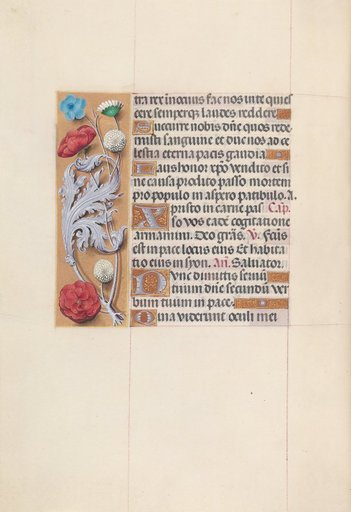 tra rex in cuius fac nos vite quies
cere semperq; laudes reddere.
Sucurre nobis dñe quos rede
misti sanguine et duc nos ad ce
lestia eterna pacis gaudia.
Laus honor xpo vendito et si
ne causa prodito passo mortem
pro populo in aspero patibulo. A.
Xpisto in carne pas Cap.
so vos eadē cogitatione
armamini. Deo grãs. V. Fcũs
est in pace locus eius Et habita
tio eius in syon. Añ. Saluator.
Nunc dimittis seruũ
tuum dñe secundũ ver
bum tuum in pace.
Quia viderunt oculi mei